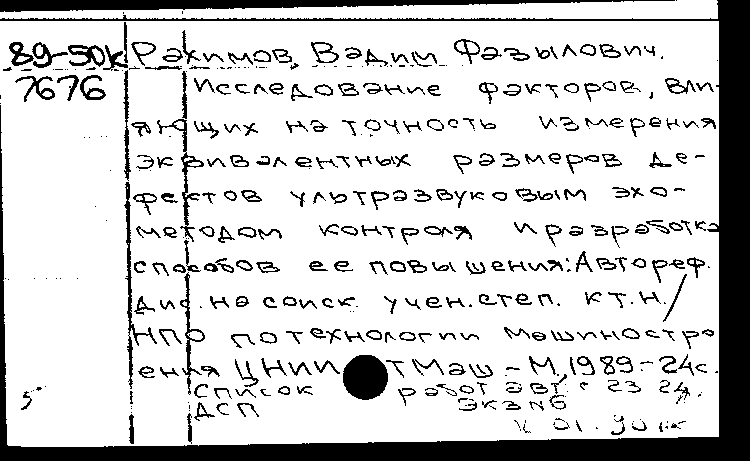 89-50к Рахимов, Вадим Фазылович.
7676 Исследование факторов, вли-
яющих на точность измерения
эквивалентных размеров де-
фектов ультразвуковым эхо-
методом контроля и разработка
способов ее повышения: Автореф.
дис. на соиск. учен. степ. к.т.н. /
НПО по технологии машиностро
ения ЦНИИТМаш - М, 1989.- 24с.
Список работ авт. с 23 24.
ДСП экз №6